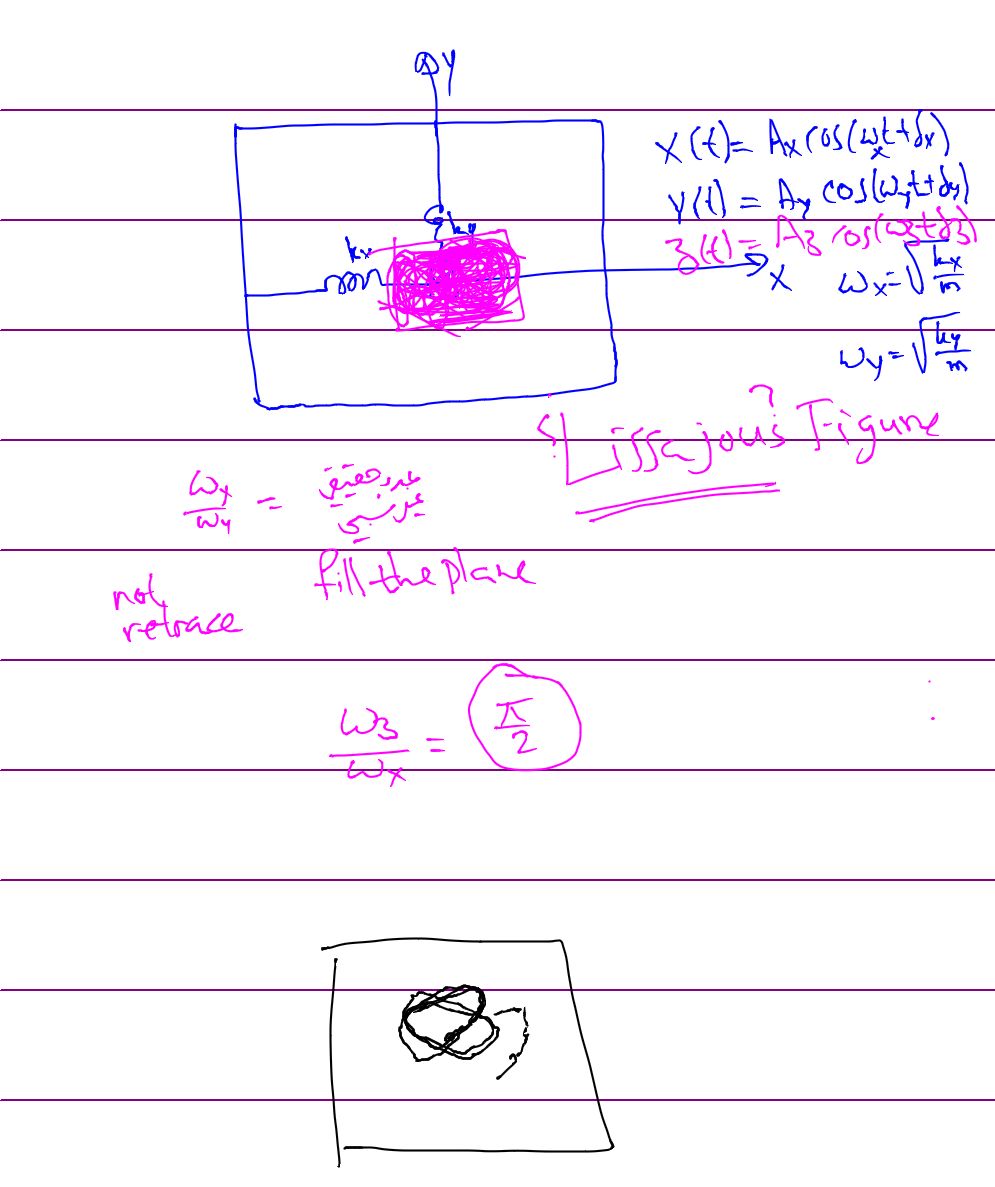 Y
x(t) = Ax cos(ωxt+δx)
y(t) = Ay cos(ωyt+δy)
z(t) = Az cos(ωzt+δz)
kx
ky
X
ωx = √(kx/m)
ωy = √(ky/m)
Lissajous Figure
ωx/ωy = عدد حقيقي
غير نسبي
fill the plane
not
retrace
ω3/ωx = π/2